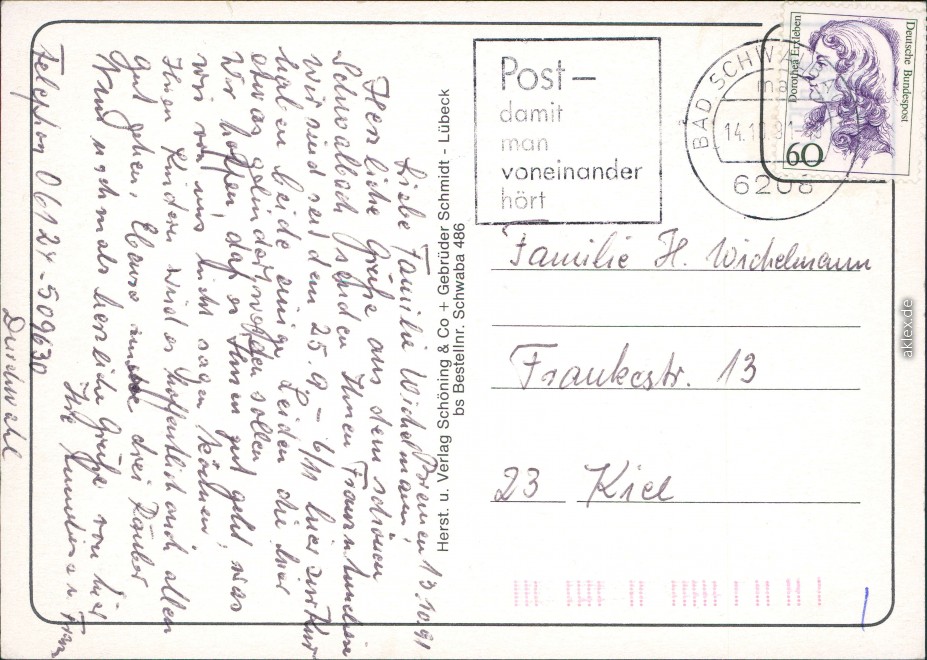 Bremen 13.10.91
Liebe Familie Wichelmann,
Herzliche Grüße aus dem schönen
Schwalbach senden Ihnen Franz u.
wir sind seit dem 25.9 – 6/11 hier zur Kur
haben beide einige Leiden die hier
etwas gelindert werden sollen
Wir hoffen, daß es Ihnen gut geht, was
wir von uns nicht sagen können
Ihren Kindern wird es hoffentlich auch allen
gut gehen. Ebenso drei Räuber
Nand nochmals herzliche Grüße von hier
Ihre u. Franz
Telefon 06124-509630
Durchwahl
Herst. u. Verlag Schöning & Co + Gebrüder Schmidt - Lübeck
bs Bestellnr. Schwaba 486
Post–
damit
man
voneinander
hört
BAD SCHWA
14.10.91
6208
Dorothea Erxleben
Deutsche Bundespost
60
Familie H. Wichelmann
Frankestr. 13
23 Kiel
aklex.de